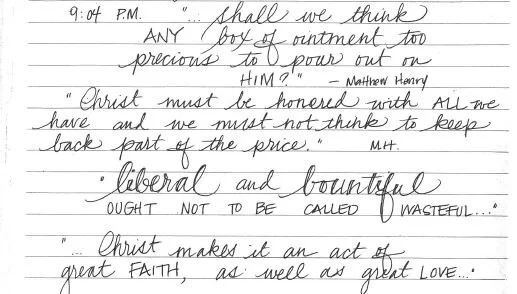 9:04 P.M. "... shall we think
ANY box of ointment too
precious to pour out on
HIM?" - Matthew Henry
"Christ must be honored with ALL we
have and we must not think to keep
back part of the price." M.H.
"liberal and bountiful
OUGHT NOT TO BE CALLED WASTEFUL..."
"... Christ makes it an act of
great FAITH, as well as great LOVE..."